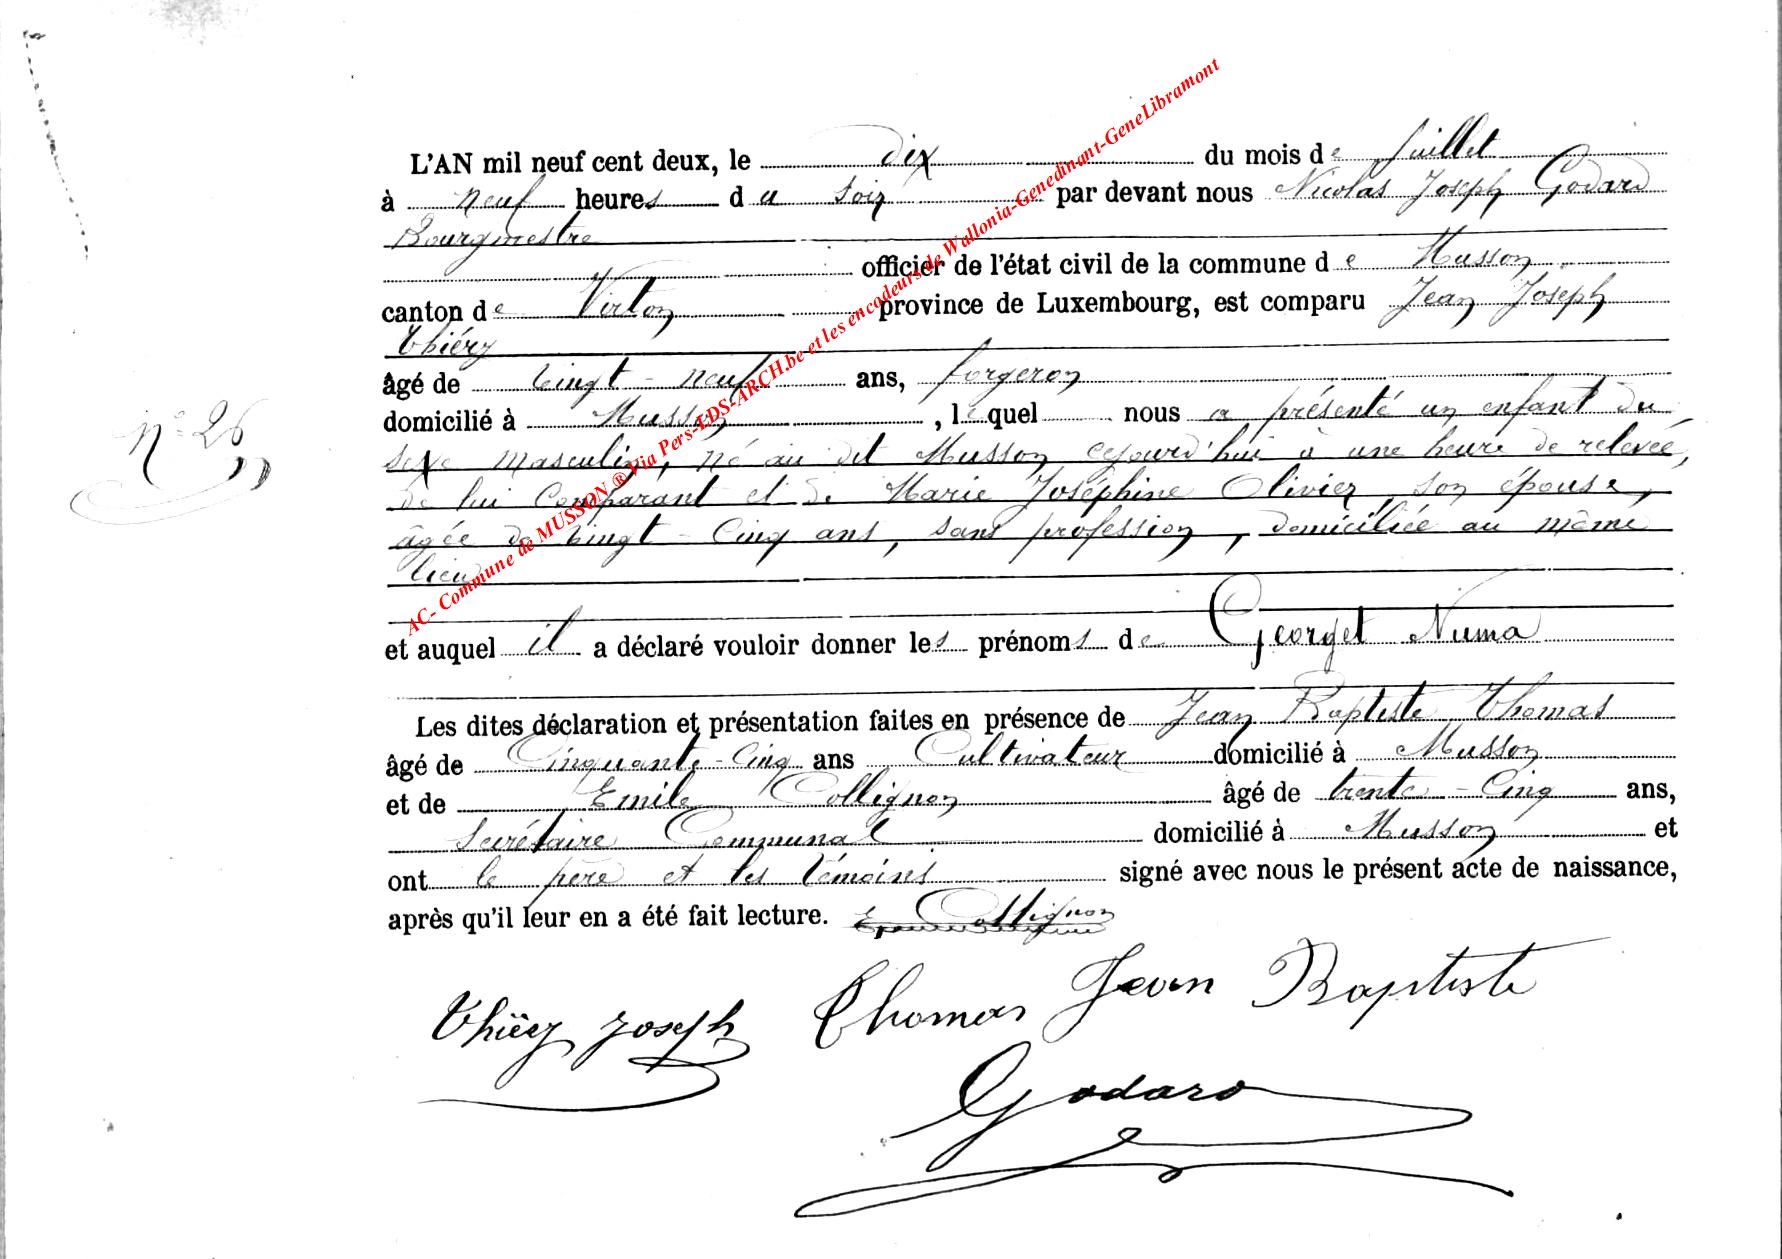 L'AN mil neuf cent deux, le dix du mois de Juillet
à neuf heures du soir par devant nous Nicolas Joseph Godard
Bourgmestre
officier de l'état civil de la commune de Musson
canton de Virton province de Luxembourg, est comparu Jean Joseph
Thiéry
âgé de vingt-neuf ans, forgeron
domicilié à Musson, lequel nous a présenté un enfant du
N° 26
sexe masculin, né au dit Musson cejourd'hui à une heure de relevée,
de lui Comparant et de Marie Joséphine Olivier, son épouse,
âgée de vingt-cinq ans, sans profession, domiciliée au même
lieu
et auquel il a déclaré vouloir donner les prénoms de Georget Numa
Les dites déclaration et présentation faites en présence de Jean Baptiste Thomas
âgé de Cinquante-Cinq ans Cultivateur domicilié à Musson
et de Emile Collignon âgé de trente-Cinq ans,
Secrétaire Communal domicilié à Musson et
ont le père et les témoins signé avec nous le présent acte de naissance,
après qu'il leur en a été fait lecture. E Collignon
Thiéry Joseph Thomas Jean Baptiste
Godard
AC- Commune de MUSSON ® Via Pers-LDS-ARCH.be et les encodeurs de Wallonia-Genedinant-GeneLibramont